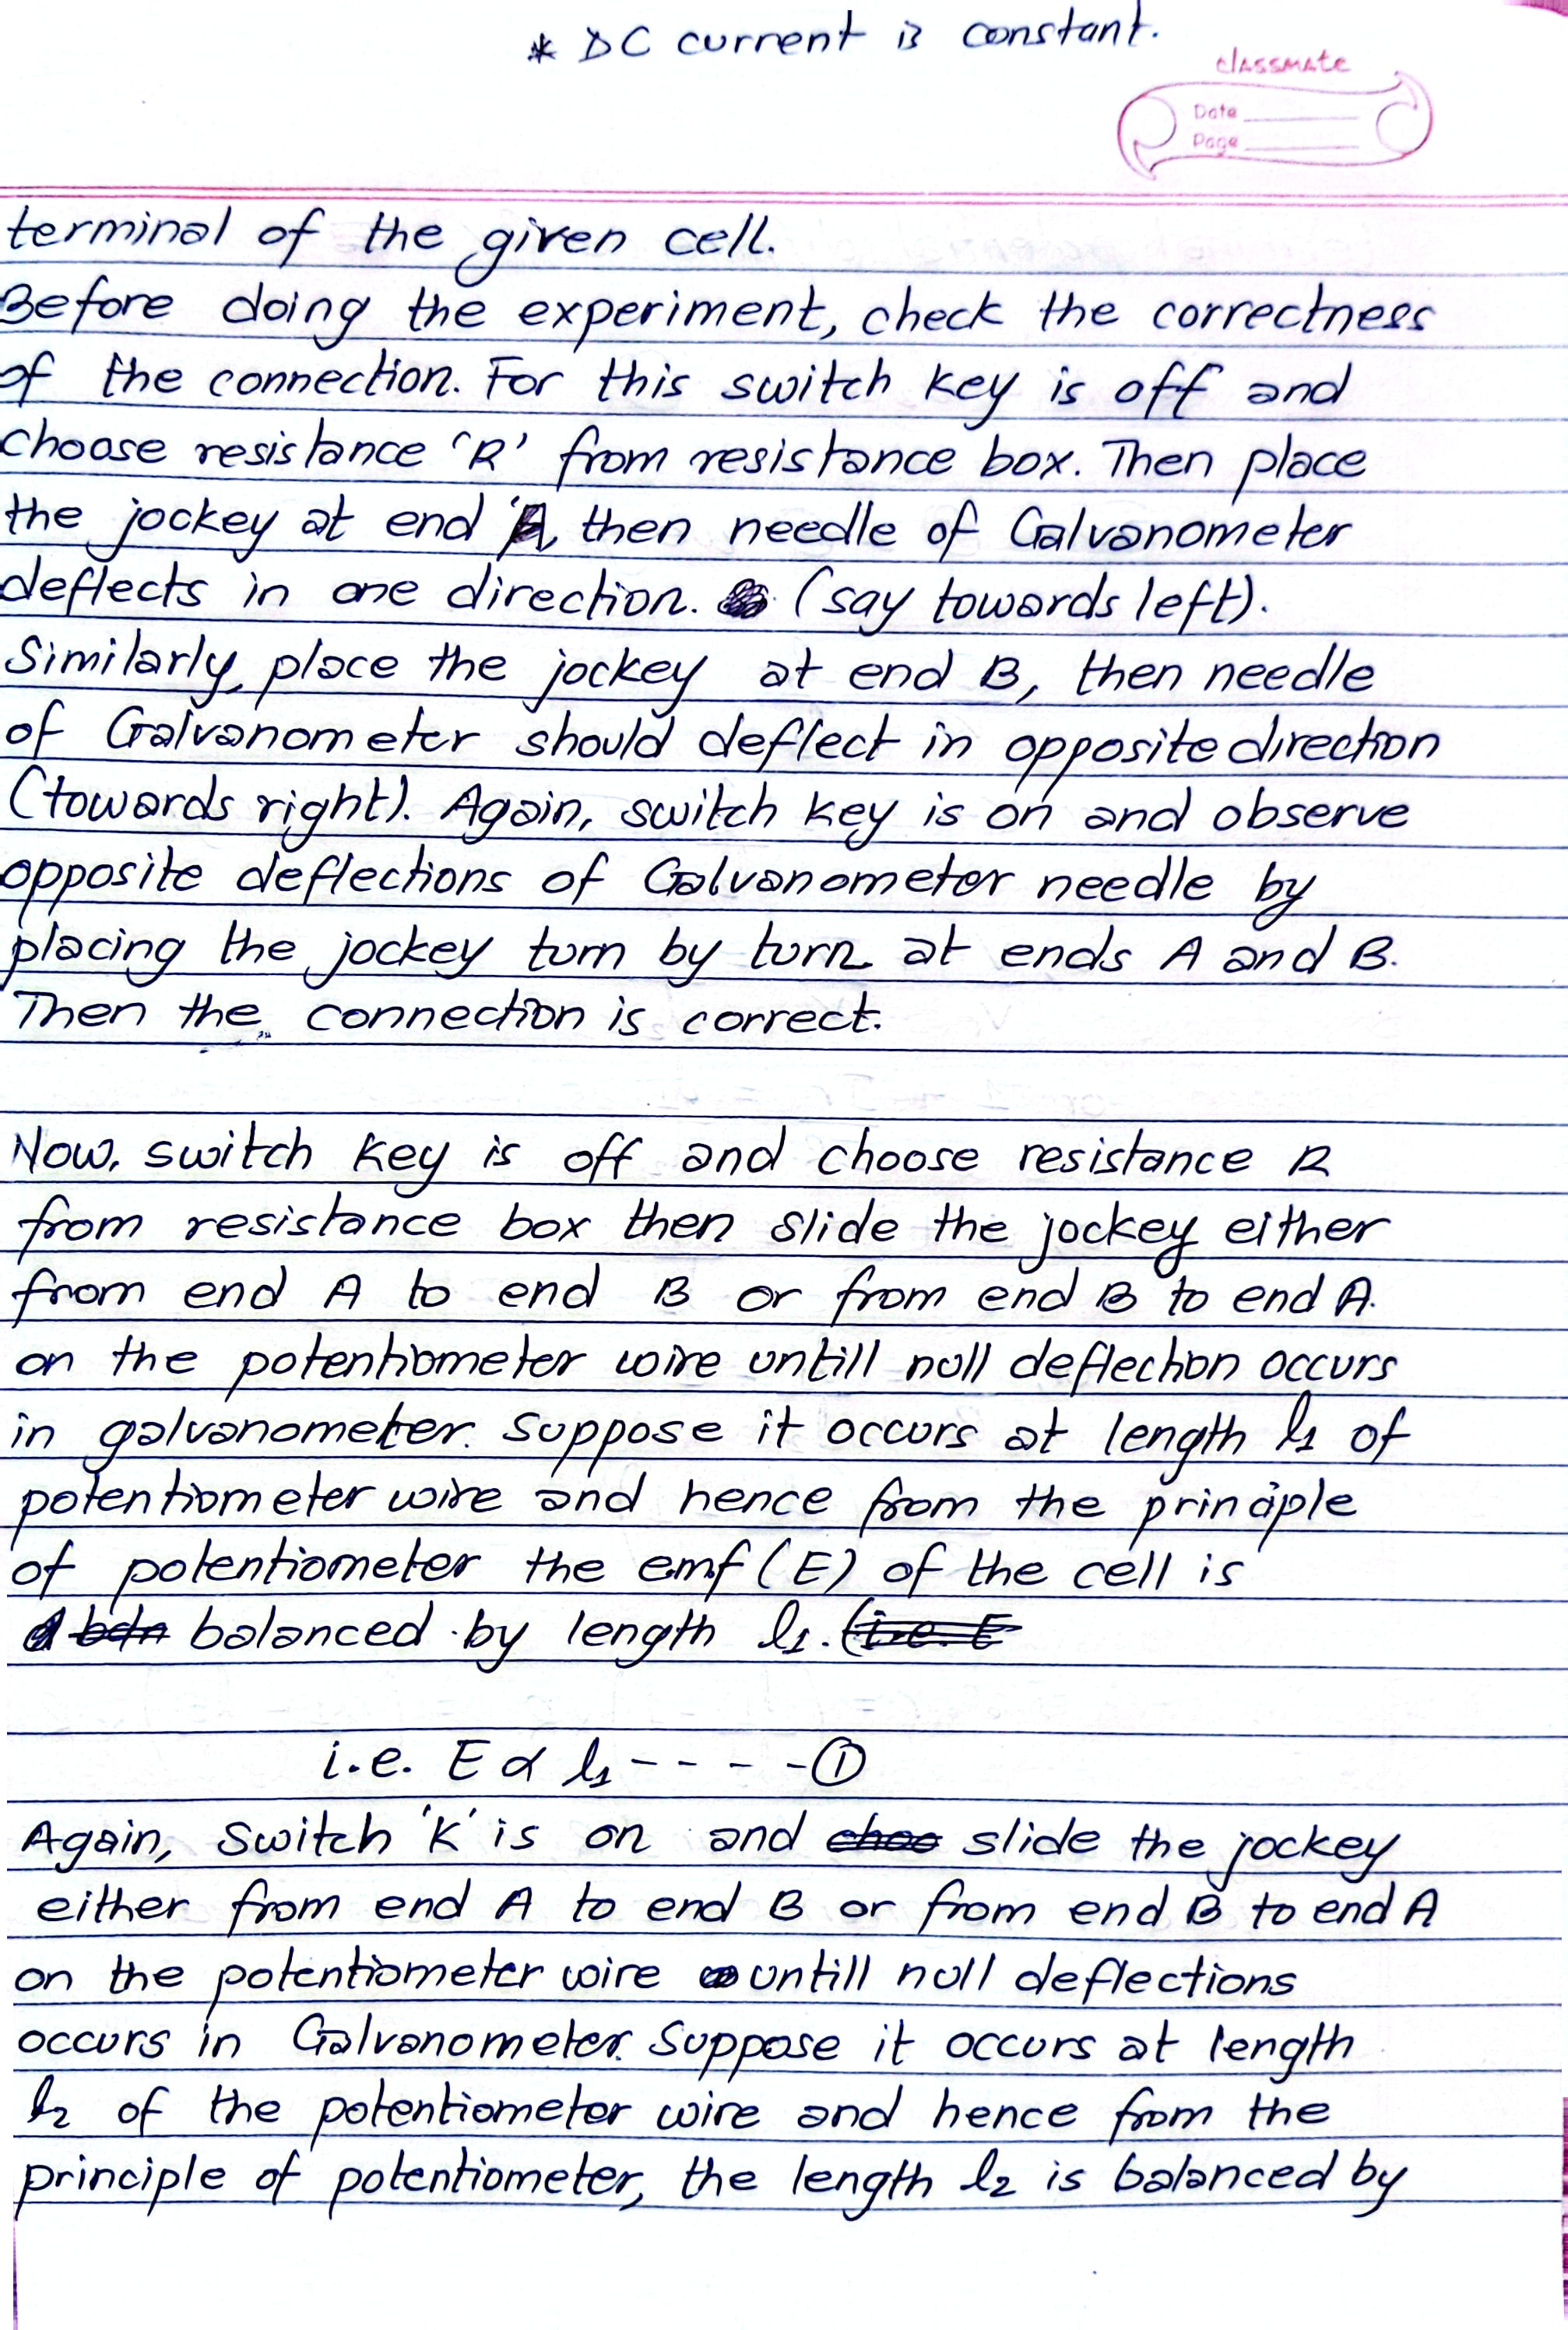 * DC current is constant.
classmate
Date
Page
terminal of the given cell.
Before doing the experiment, check the correctness
of the connection. For this switch key is off and
choose resistance 'R' from resistance box. Then place
the jockey at end A, then needle of Galvanometer
deflects in one direction. (say towards left).
Similarly, place the jockey at end B, then needle
of Galvanometer should deflect in opposite direction
(towards right). Again, switch key is on and observe
opposite deflections of Galvanometer needle by
placing the jockey turn by turn at ends A and B.
Then the connection is correct.
Now, switch key is off and choose resistance R
from resistance box then slide the jockey either
from end A to end B or from end B to end A.
on the potentiometer wire untill null deflection occurs
in galvanometer. Suppose it occurs at length l1 of
potentiometer wire and hence from the principle
of potentiometer the emf (E) of the cell is
balanced by length l1. (i.e. E
i.e. E ∝ l1 - - - - ①
Again, Switch 'K' is on and choo slide the jockey
either from end A to end B or from end B to end A
on the potentiometer wire untill null deflections
occurs in Galvanometer. Suppose it occurs at length
l2 of the potentiometer wire and hence from the
principle of potentiometer, the length l2 is balanced by